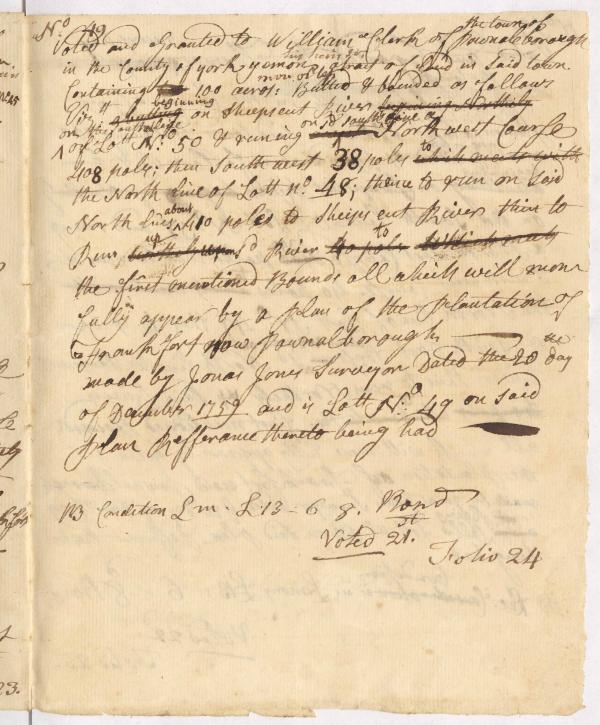 No. 49
Voted and Granted to William Clark of the town of Pownalborough
in the County of york yeoman a tract of land in said town
Containing 100 acres more or less: Butted & bounded as follows
Viz. beginning on Sheepscut River
on the
of Lott No. 50 & runing on sd a Northwest Course
408 poles; then Southwest 38 poles to
the North Line of Lott no. 48; thence to run on said
North Line about 410 poles to Sheepscut River then to
Run up sd River to
the first mentioned Bounds all which will more
fully appear by a plan of the plantation of
Frankfort now Pownalborough
made by Jonas Jones Surveyor Dated the 20 day
of December 1759 and is Lott No. 49 on said
plan Refferance thereto being had
NB Condition L m. £13 - 6 8. Bond
Voted 21st.
Folio 24
23.